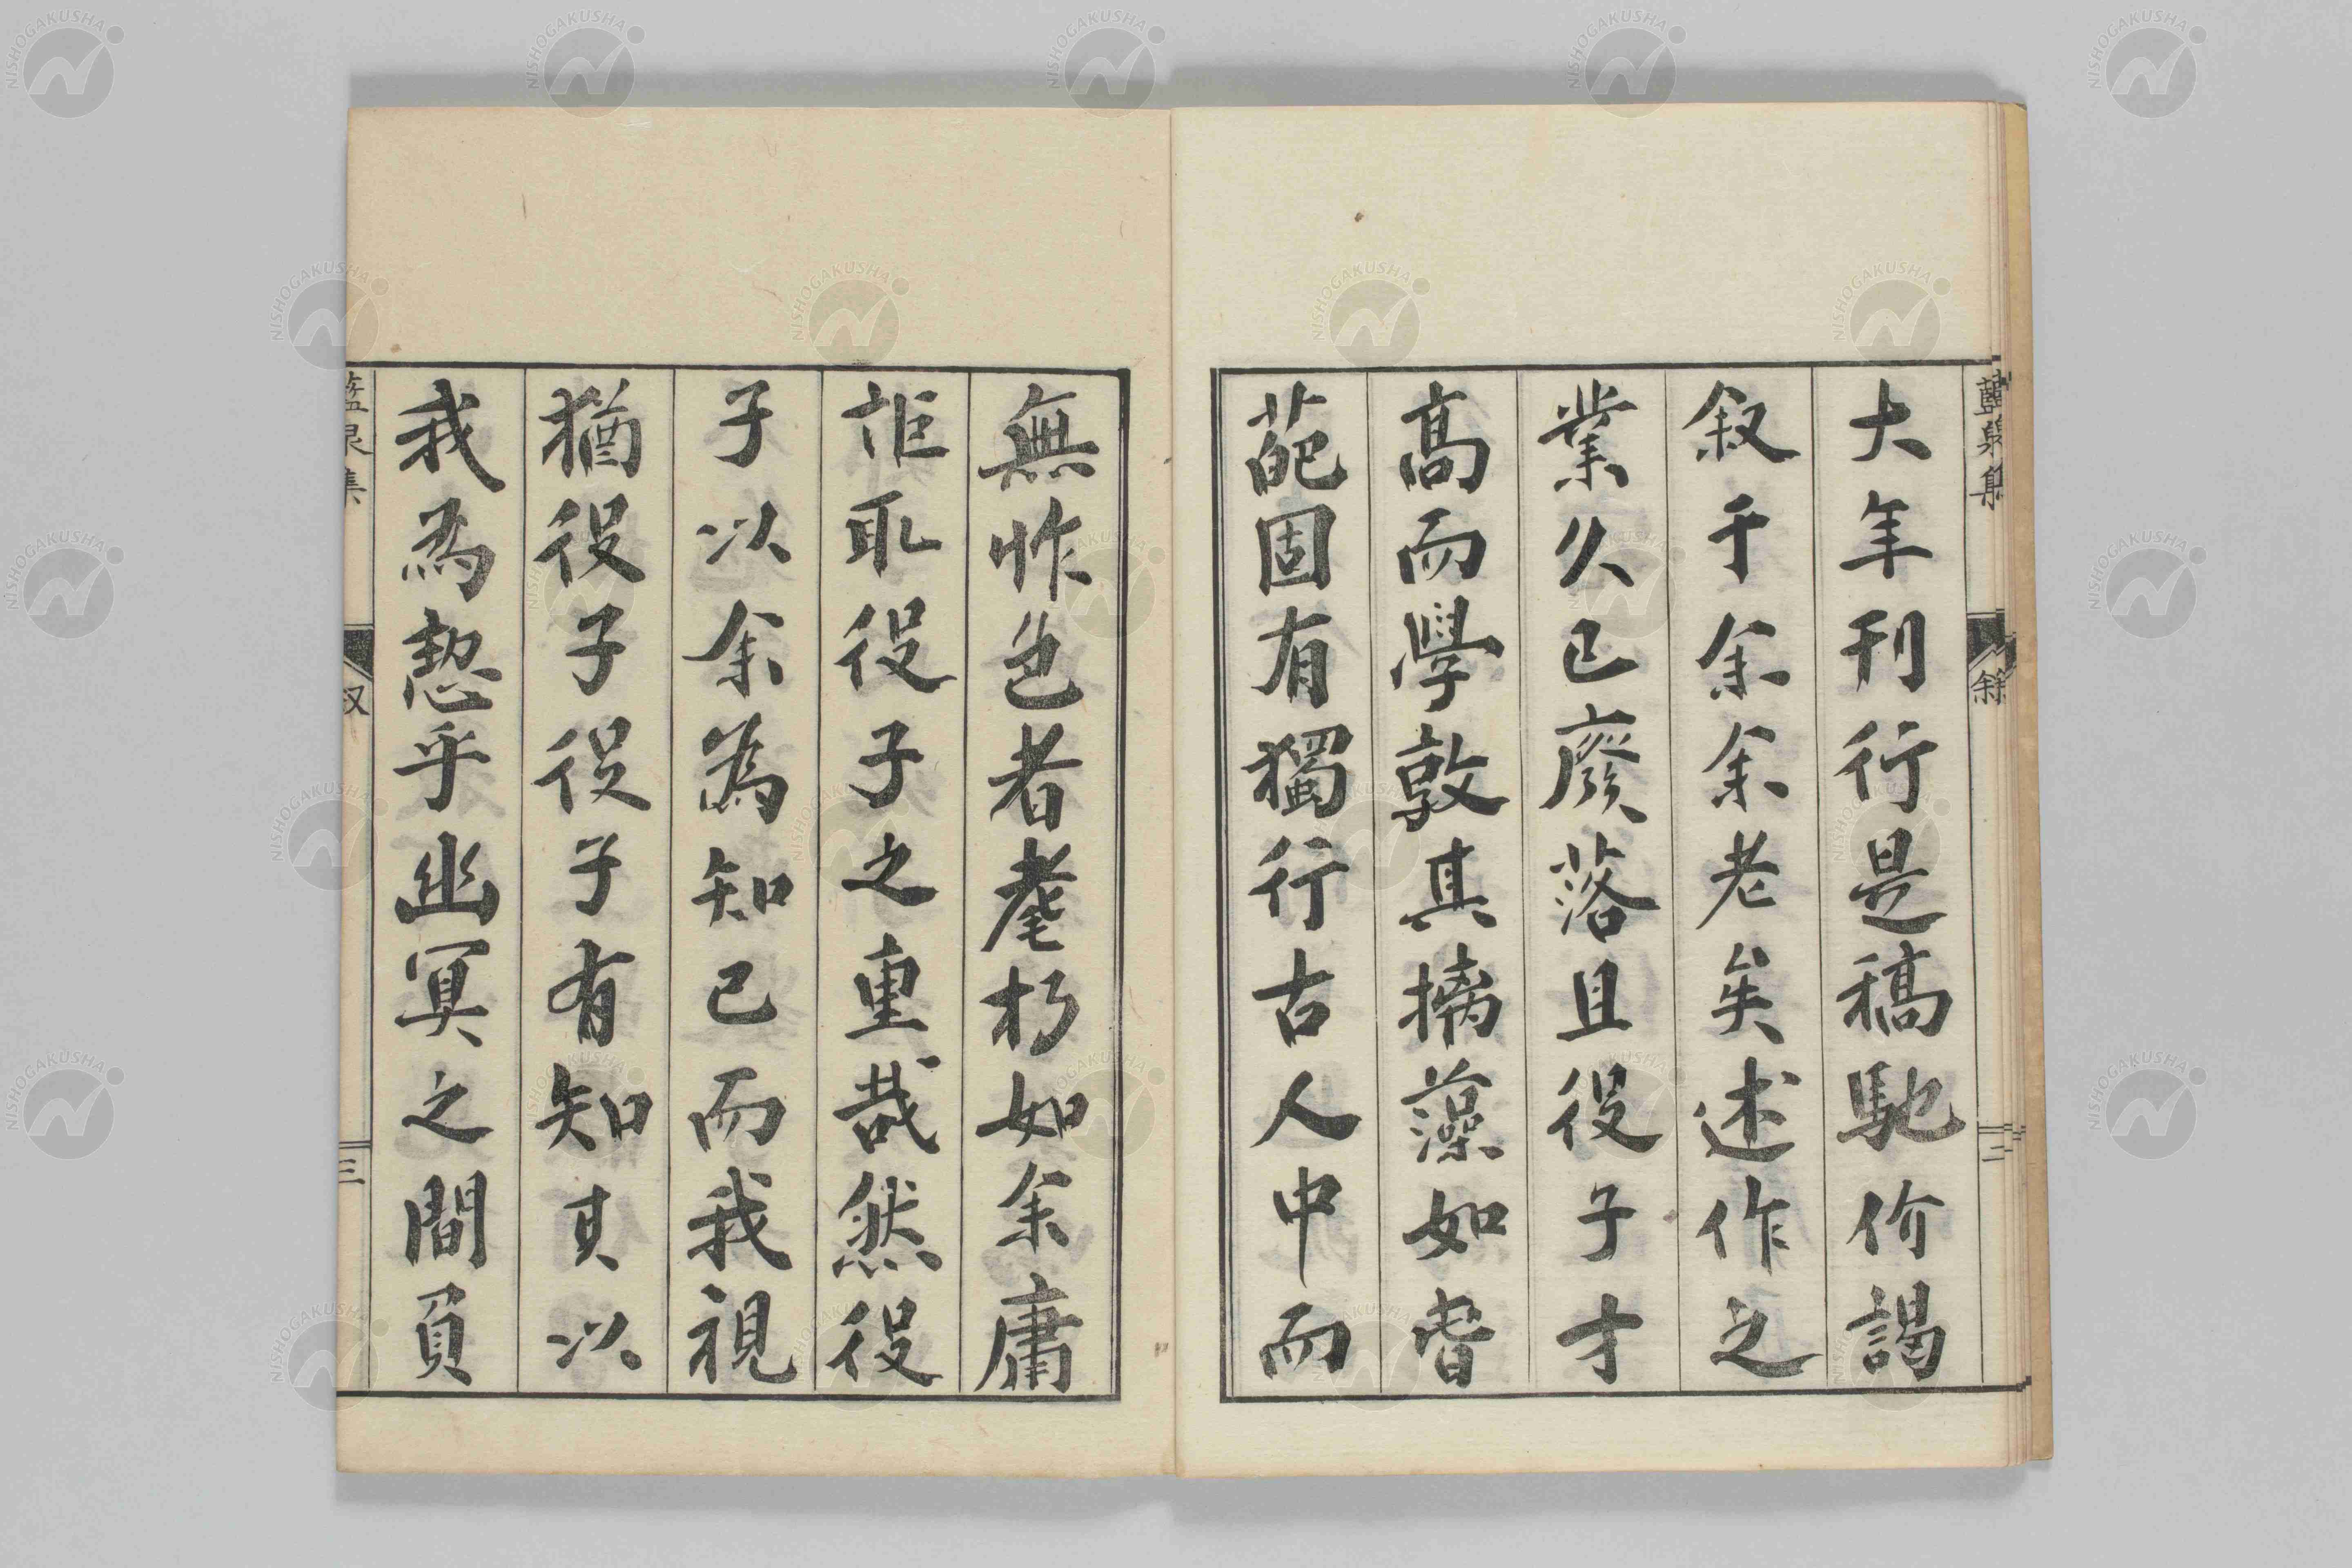 大年刊行是稿馳价謁
叙于余余老矣述作之
業久已廢落且役子才
高而學敦其摛藻如春
葩固有獨行古人中而
無怍色者耄朽如余庸
詎取役子之重哉然役
子以余為知己而我視
猶役子役子有知其以
我為慙乎幽冥之間負